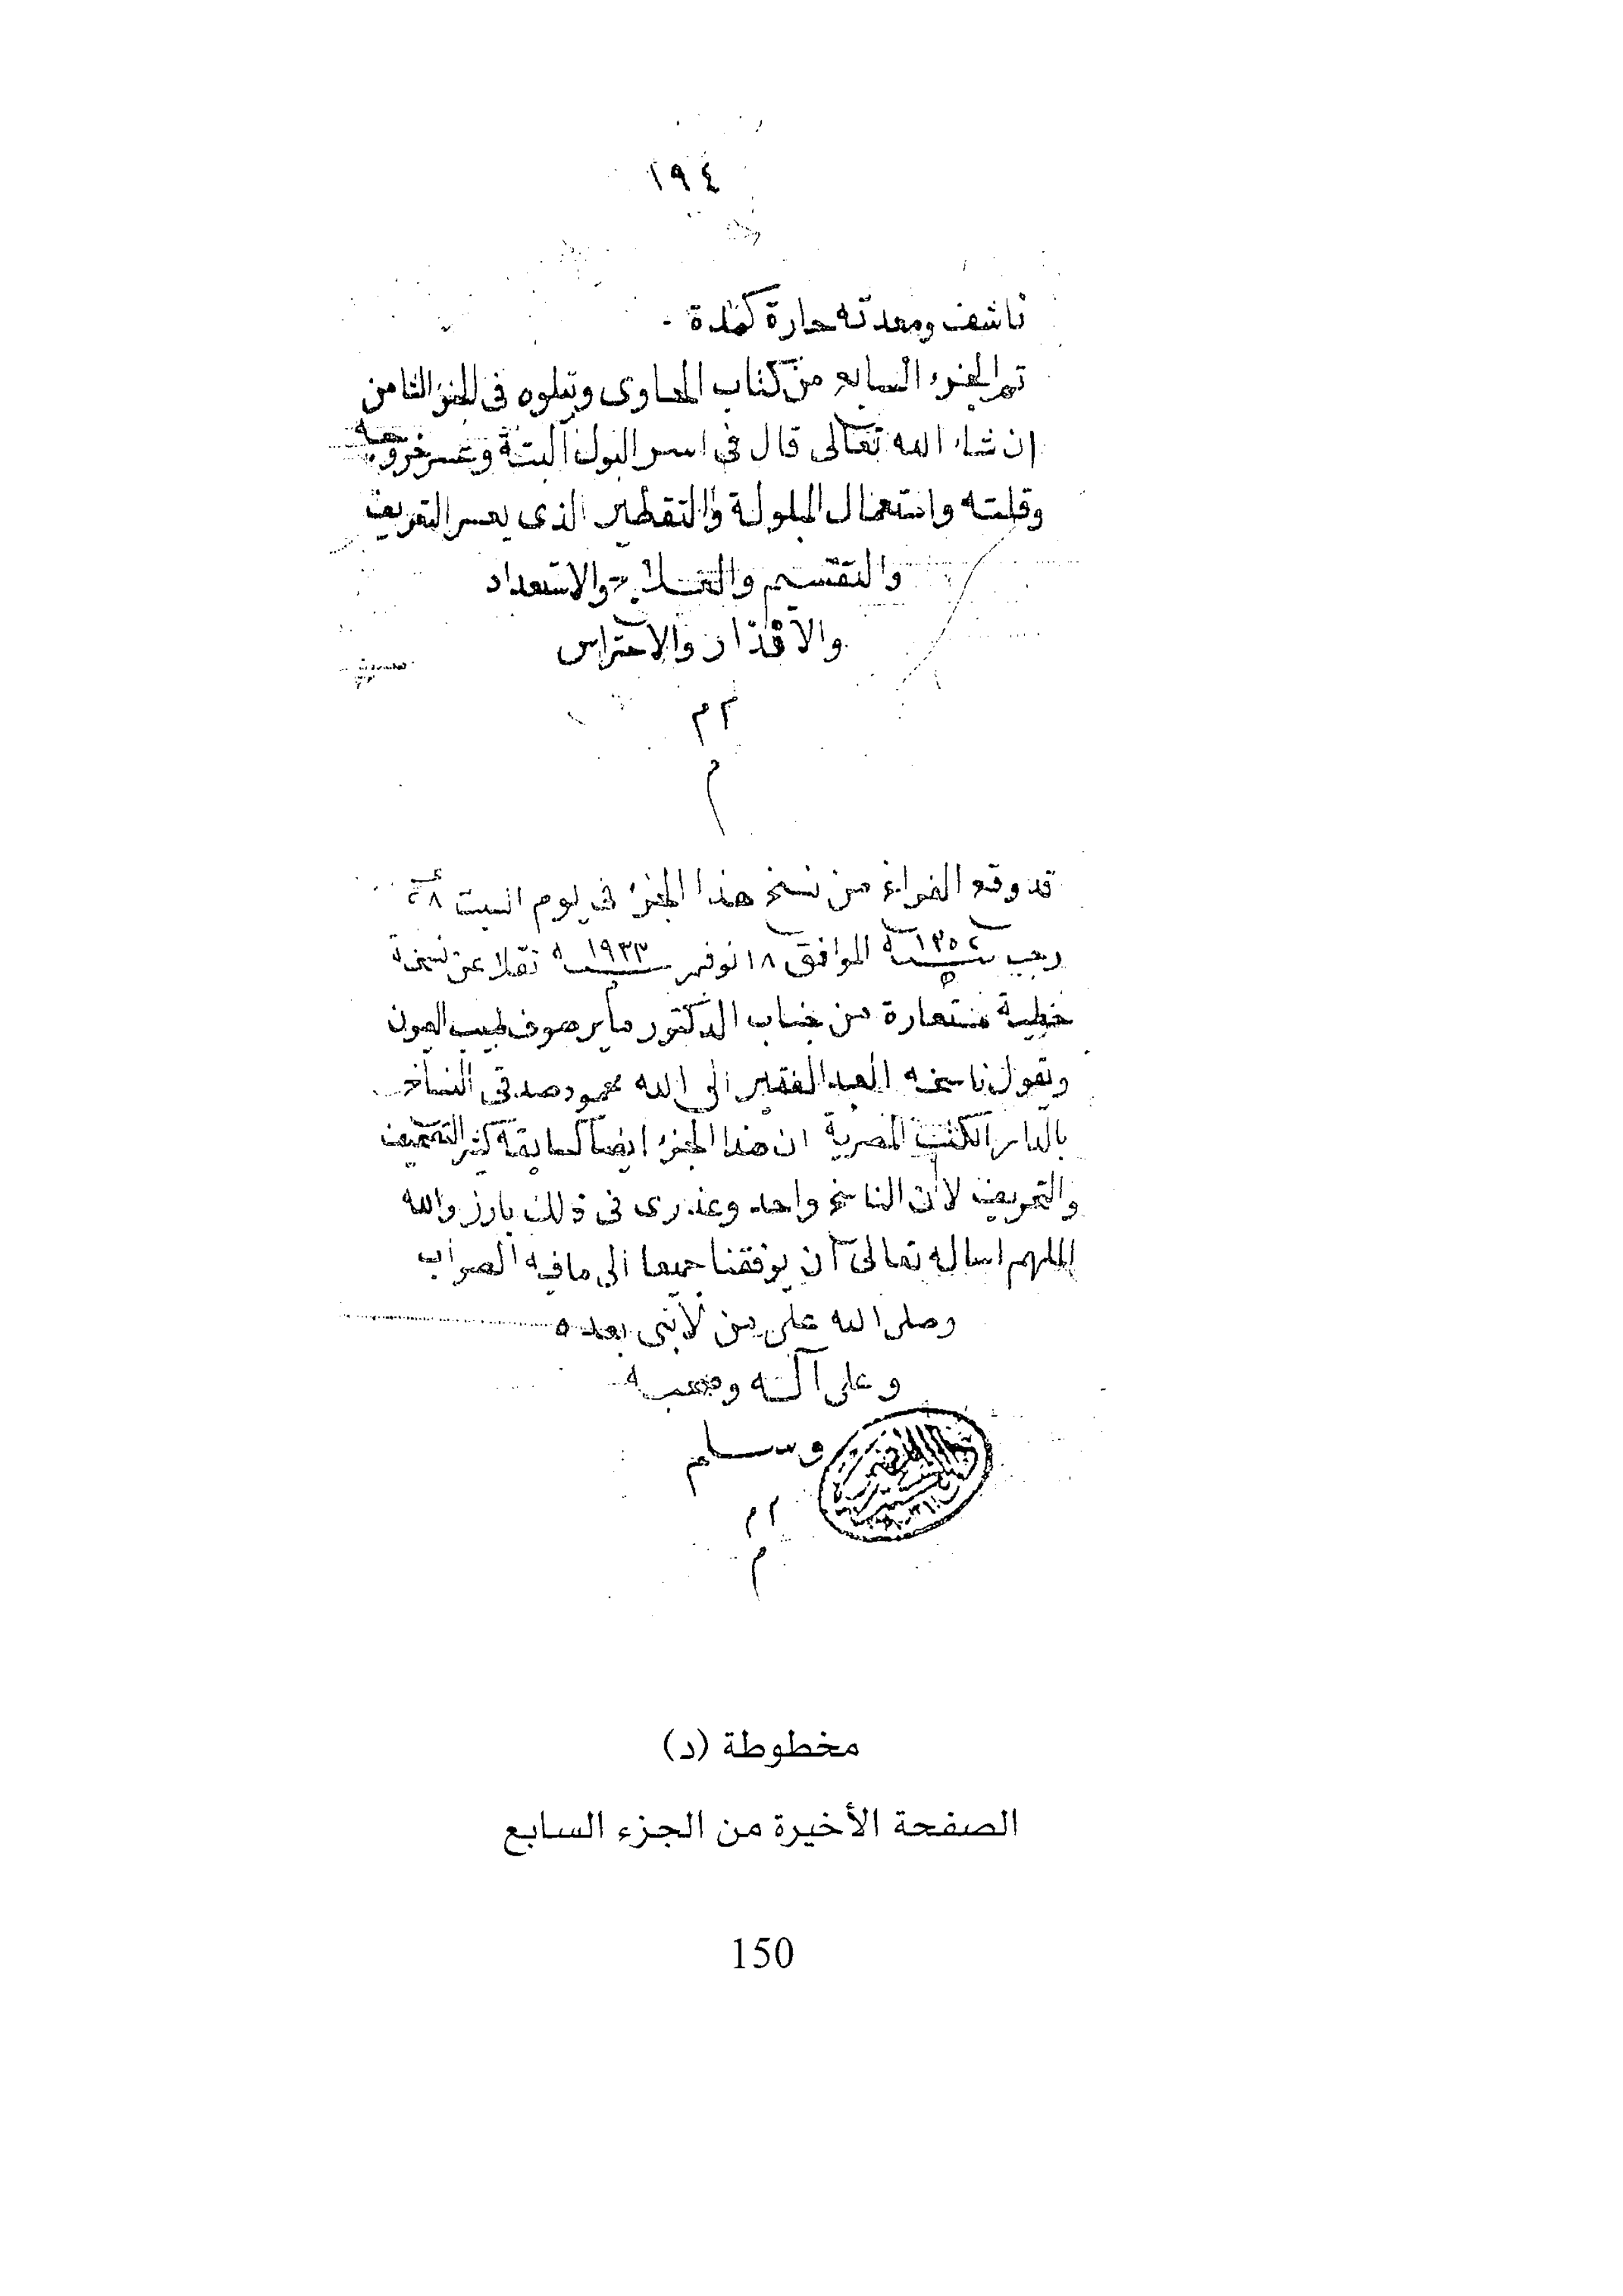 ١٩٤
ناشف ومعدته حارة كمدة .
تم الجزء السابع من كتاب الحاوى ويتلوه فى الجزء الثامن
ان شاء الله تعالى قال فى اسر البول البتة وعسر خروجه
وقلته واستعمال المبولة والتقطير الذى يعسر التعريف
والتقسيم والعلاج والاستعداد
والاقذار والاحتراس
م م
م
قد وقع الفراغ من نسخ هذا الجزء فى يوم السبت
رجب سنة ١٣٥٢ الموافق ١٨ نوفمبر سنة ١٩٣٣ نقلا عن نسخة
خطية مستعارة من جناب الدكتور مايرهوف طبيب العيون
ويقول ناسخه العبد الفقير الى الله محمود صدقى النساخ
بالدار الكتب المصرية ان هذا الجزء ايضا كسابقه كثير التصحيف
والتحريف لأن الناسخ واحد وعذرى فى ذلك بارز والله
الملهم اساله تعالى أن يوفقنا جميعا الى ما فيه الصواب
وصلى الله على من لا نبى بعده
وعلى آله وصحبه
وسلم
م م
م
مخطوطة (د)
الصفحة الأخيرة من الجزء السابع
150